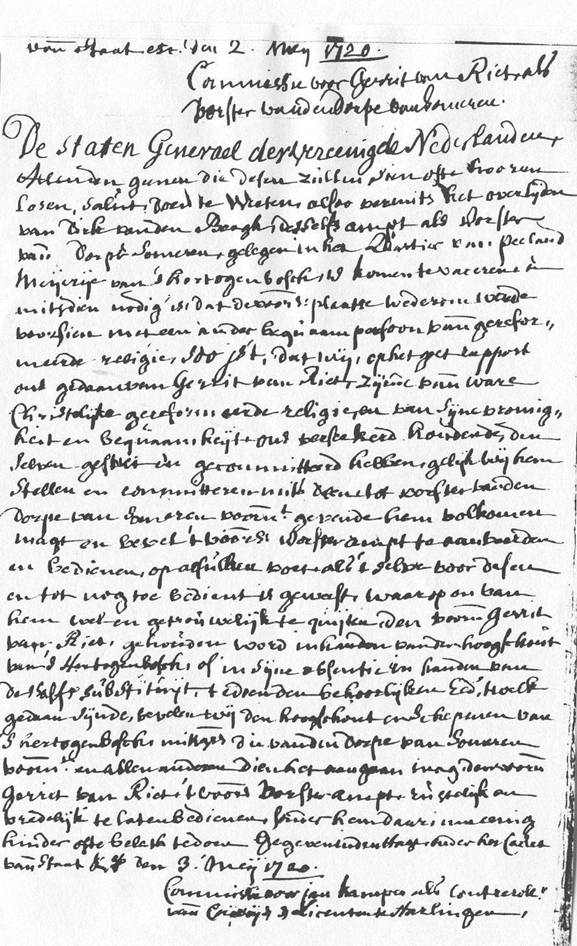 van Staat etc. den 2. Meij 1720.
Commissie voor Gerrit van Riet als
vorster van den Dorpe van Someren.
De Staten Generael der Vereenigde Nederlanden,
Allen den genen die desen zullen sien ofte hooren
lesen, salut, doen te weten, alsoo vermits het overlijden
van Dirk van den Boogh, desselfs ampt als vorster
van Dorpe Someren, gelegen in het Quartier van Peeland
Meijerije van 's Hertogenbosch, is komen te vaceren, en
mitsdien nodig is, dat de voors. plaatse wederom werde
voorsien met een ander bequaam persoon van gerefor„
meerde religie, Soo ist, dat wij, op het goet rapport
ons gedaan van Gerrit van Riet, zijnde van ware
Christelijke gereformeerde religie, en van sijne vromig„
heit en bequaamheijt ons verseekerd houdende, den
selven gestelt en gecommitteerd hebben, gelijk wij hem
stellen en committeren mits desen tot vorster van den
Dorpe van Someren voorn.t gevende hem volkomen
magt en bevel 't voors. vorster ampt te aanveerden
en bedienen, op alsulken voet als 't selve voor desen
en tot nog toe bedient is geweest, waar op en van
hem wel en getrouwelijk te quijten, den voorn. Gerrit
van Riet, gehouden word in handen van den hoogschout
van 's Hertogenbosch, of in sijne absentie in handen van
desselfs substituijt, te doen den behoorlijken Eed, 't welk
gedaan sijnde, bevelen wij den hoogschout en schepenen van
's Hertogenbosch, mitsgrs die van den Dorpe van Someren
voorn.t en allen anderen dien het aengaen mag, den voorn
Gerrit van Riet 't voors. vorster ampt, rustelijk en
vredelijk te laten bedienen, sonder hem daar inne eenig
hinder ofte belet te doen. Gegeven in den Hage, onder het Cachet
van Staat den 3. Meij 1720.
Commissie voor Jan Kamper als Controll.r
van Convoijen en Licenten te Harlingen,